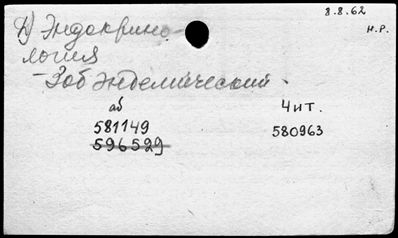 8.8.62
Д) Эндокрино- Н.Р.
логия
- Зоб эндемический.
аб Чит.
581149 580963
596529